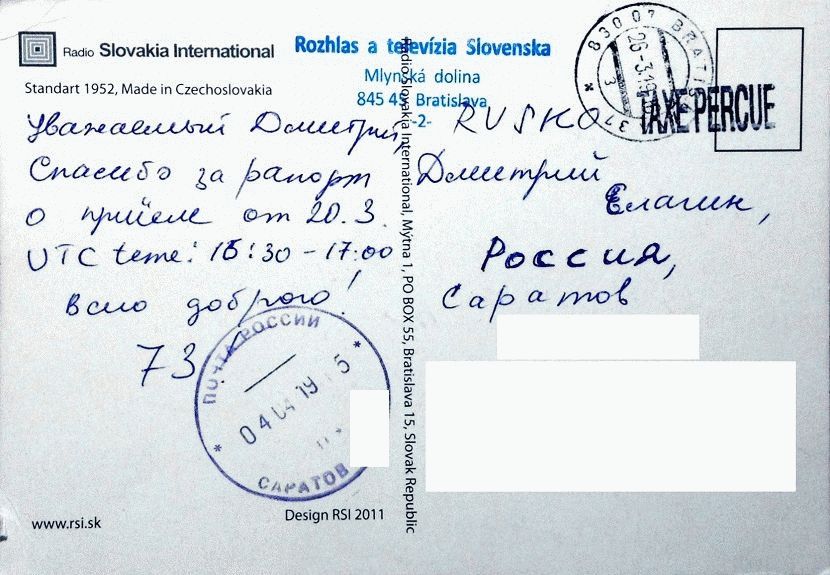 Radio Slovakia International
Standart 1952, Made in Czechoslovakia
Уважаемый Дмитрий,
Спасибо за рапорт
о приёме от 20.3.
UTC teme: 16:30-17:00
Всего доброго!
73!
www.rsi.sk
Design RSI 2011
Radio Slovakia International, Mýtna 1, PO BOX 55, Bratislava 15, Slovak Republic
Rozhlas a televízia Slovenska
Mlynská dolina
845 45 Bratislava
-2-
RUSKO
Дмитрий
Елагин,
Россия,
Саратов
830 07 BRATIS
26-3.19
37
TAXE PERCUE
ПОЧТА РОССИИ
04 04 19
САРАТОВ